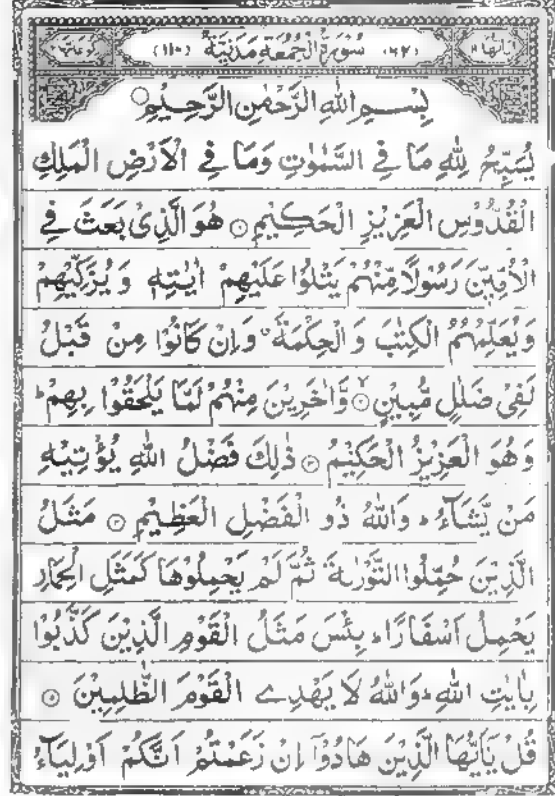 اٰیاتها ۱۱ (۶۲) سُوْرَةُ الْجُمُعَةِ مَدَنِیَّةٌ (۱۱۰) رکوعاتها ۲
بِسْمِ اللّٰهِ الرَّحْمٰنِ الرَّحِیْمِ
یُسَبِّحُ لِلّٰهِ مَا فِی السَّمٰوٰتِ وَمَا فِی الْاَرْضِ الْمَلِكِ
الْقُدُّوْسِ الْعَزِیْزِ الْحَكِیْمِ ۱ هُوَ الَّذِیْ بَعَثَ فِی
الْاُمِّیّٖنَ رَسُوْلًا مِّنْهُمْ یَتْلُوْا عَلَیْهِمْ اٰیٰتِهٖ وَیُزَكِّیْهِمْ
وَیُعَلِّمُهُمُ الْكِتٰبَ وَالْحِكْمَةَ وَاِنْ كَانُوْا مِنْ قَبْلُ
لَفِیْ ضَلٰلٍ مُّبِیْنٍ ۲ وَّاٰخَرِیْنَ مِنْهُمْ لَمَّا یَلْحَقُوْا بِهِمْ ط
وَهُوَ الْعَزِیْزُ الْحَكِیْمُ ۳ ذٰلِكَ فَضْلُ اللّٰهِ یُؤْتِیْهِ
مَنْ یَّشَآءُ ط وَاللّٰهُ ذُو الْفَضْلِ الْعَظِیْمِ ۴ مَثَلُ
الَّذِیْنَ حُمِّلُوا التَّوْرٰىةَ ثُمَّ لَمْ یَحْمِلُوْهَا كَمَثَلِ الْحِمَارِ
یَحْمِلُ اَسْفَارًا ط بِئْسَ مَثَلُ الْقَوْمِ الَّذِیْنَ كَذَّبُوْا
بِاٰیٰتِ اللّٰهِ ط وَاللّٰهُ لَا یَهْدِے الْقَوْمَ الظّٰلِمِیْنَ ۵
قُلْ یٰۤاَیُّهَا الَّذِیْنَ هَادُوْۤا اِنْ زَعَمْتُمْ اَنَّكُمْ اَوْلِیَآءُ